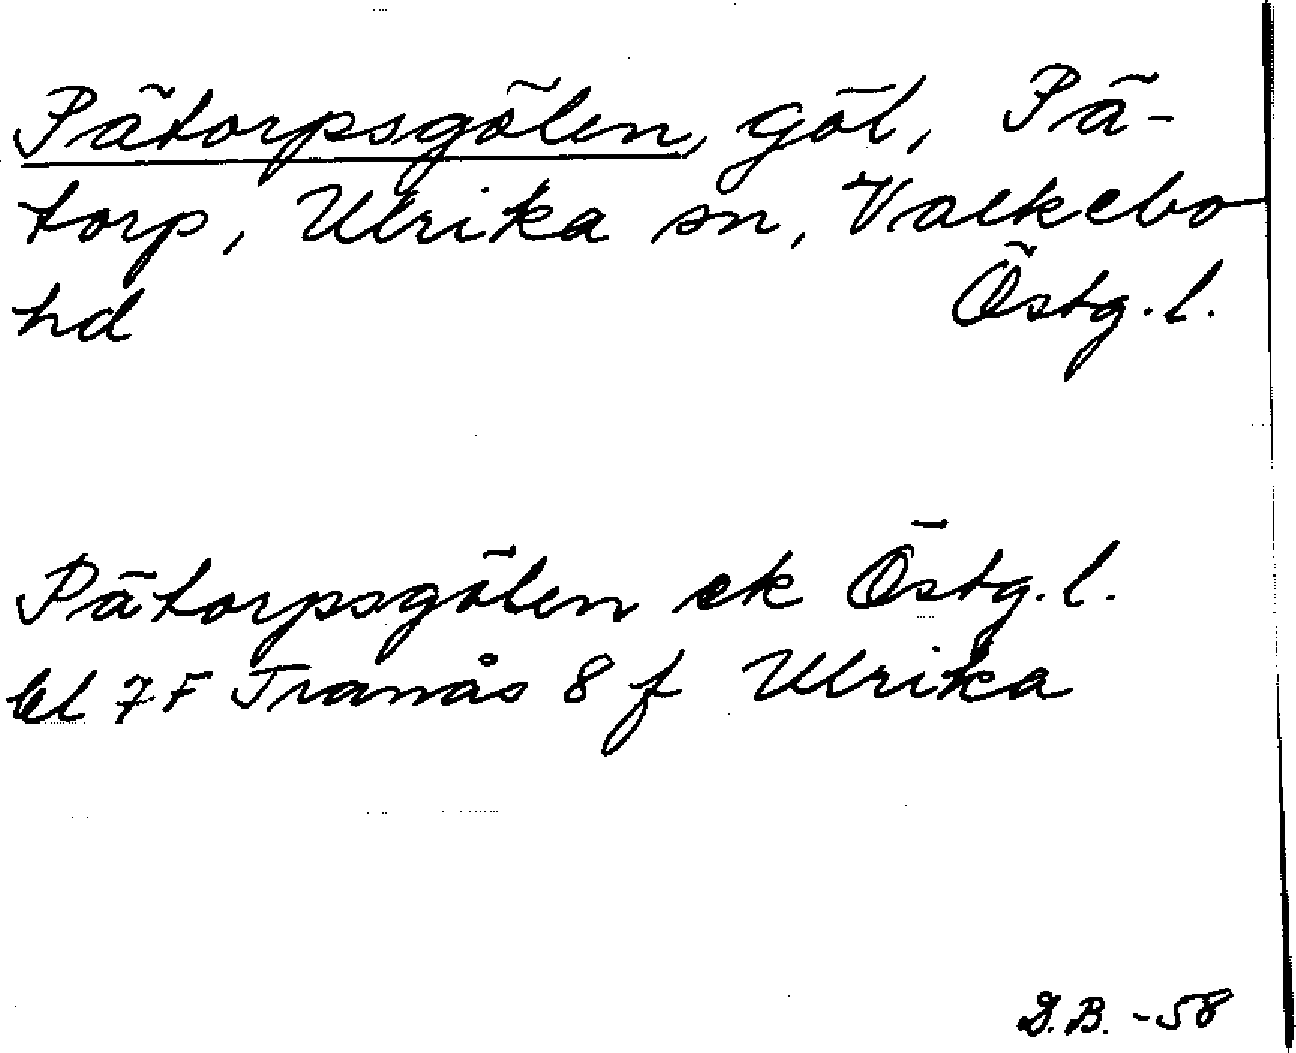 Pätorpsgölen, göl, Pä-
torp, Ulrika sn, Valkebo
hd Östg. l.
Pätorpsgölen ek Östg. l.
bl 7F Tranås 8 f Ulrika
D.B. -58